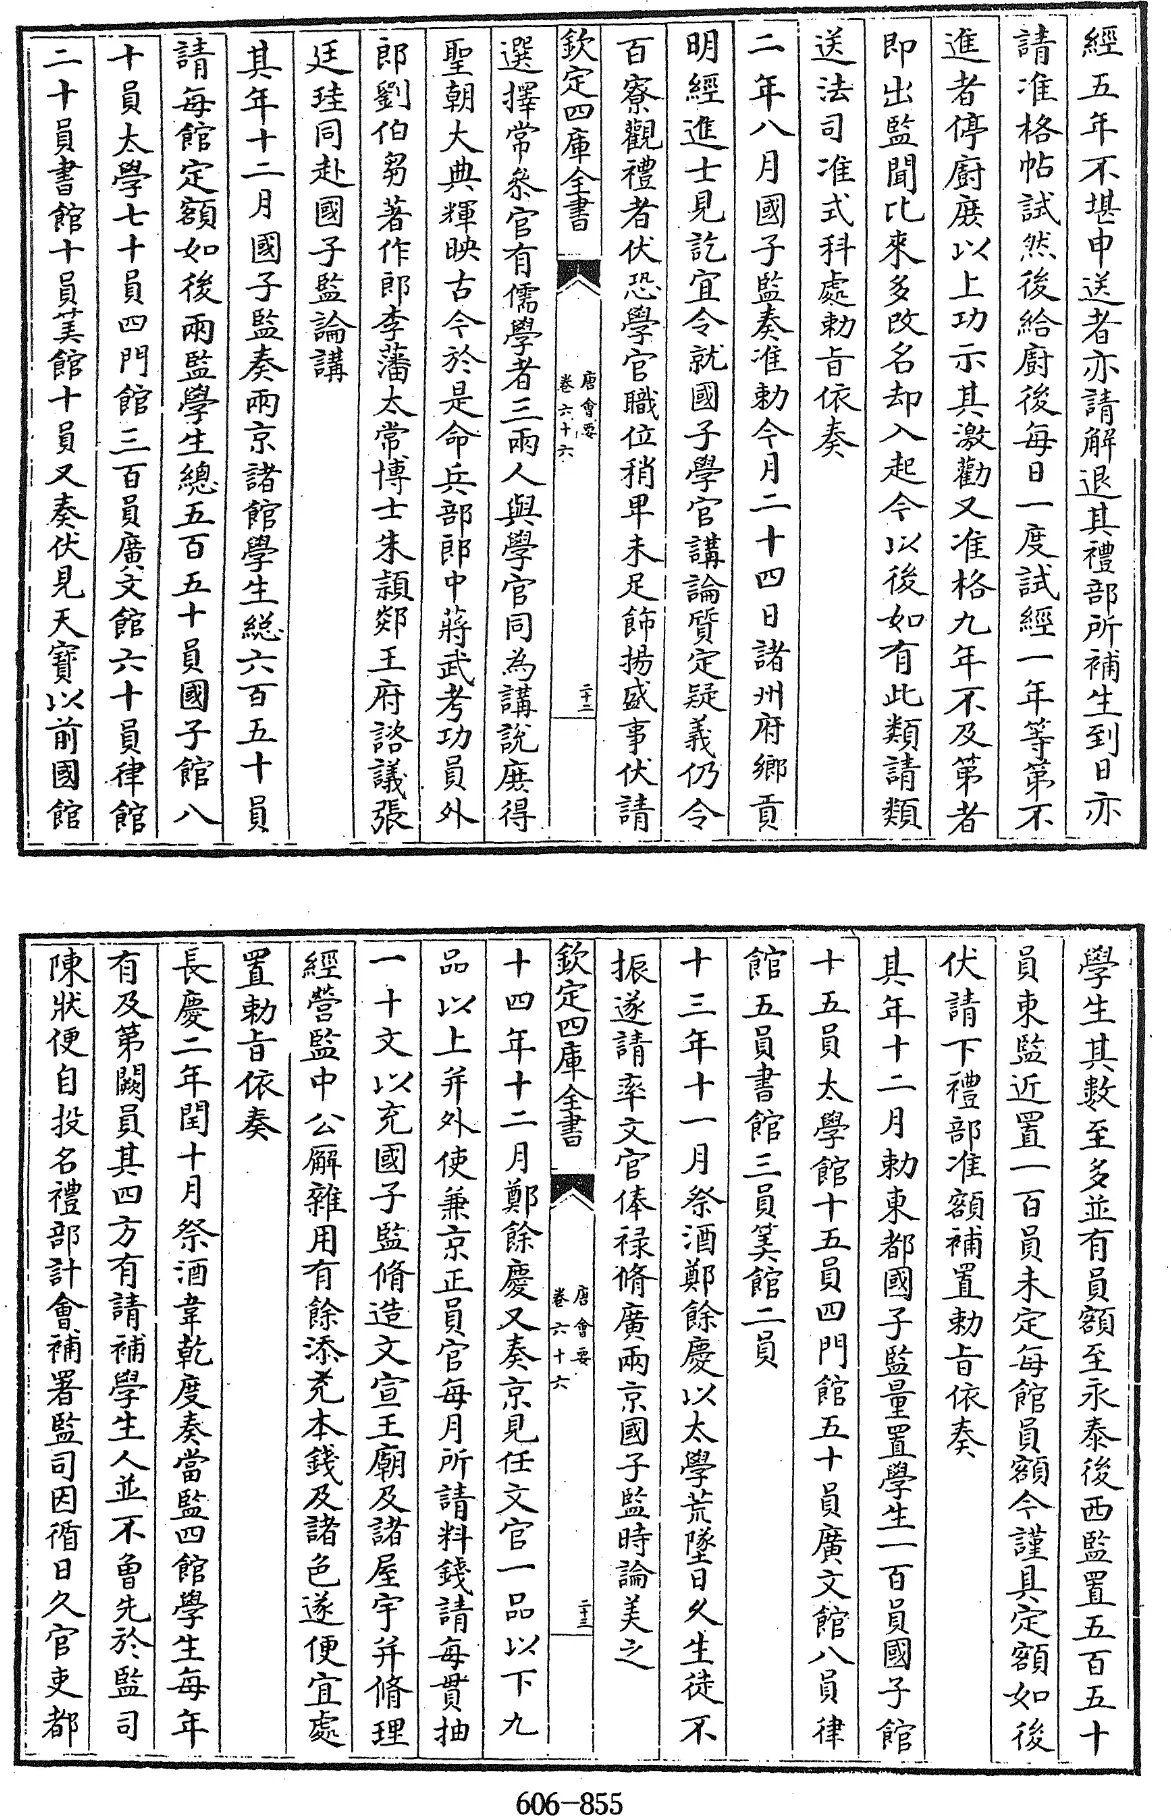 經五年不堪申送者亦請解退其禮部所補生到日亦
請准格帖試然後給廚後每日一度試經一年等第不
進者停廚庻以上功示其激勸又准格九年不及第者
即出監聞比來多改名却入起今以後如有此類請類
送法司准式科處勅旨依奏
二年八月國子監奏准勅今月二十四日諸州府鄉貢
明經進士見訖宜令就國子學官講論質定疑義仍令
百寮觀禮者伏恐學官職位稍卑未足飾揚盛事伏請
欽定四庫全書
唐會要
卷六十六
二十二
選擇常叅官有儒學者三兩人與學官同為講說庻得
聖朝大典輝映古今於是命兵部郎中蔣武考功員外
郎劉伯芻著作郎李藩太常博士朱潁郯王府諮議張
廷珪同赴國子監論講
其年十二月國子監奏兩京諸館學生緫六百五十員
請每館定額如後兩監學生總五百五十員國子館八
十員太學七十員四門館三百員廣文館六十員律館
二十員書館十員筭館十員又奏伏見天寶以前國館
學生其數至多並有員額至永泰後西監置五百五十
員東監近置一百員未定每館員額今謹具定額如後
伏請下禮部准額補置勅旨依奏
其年十二月勅東都國子監量置學生一百員國子館
十五員太學館十五員四門館五十員廣文館八員律
館五員書館三員筭館二員
十三年十一月祭酒鄭餘慶以太學荒墜日久生徒不
振遂請率文官俸禄脩廣兩京國子監時論美之
欽定四庫全書
唐會要
卷六十六
二十三
十四年十二月鄭餘慶又奏京見任文官一品以下九
品以上并外使兼京正員官每月所請料錢請每貫抽
一十文以充國子監脩造文宣王廟及諸屋宇并脩理
經營監中公廨雜用有餘添充本錢及諸色遂便宜處
置勅旨依奏
長慶二年閏十月祭酒韋乾度奏當監四館學生每年
有及第闕員其四方有請補學生人並不曾先於監司
陳狀便自投名禮部計會補署監司因循日久官吏都
606-855